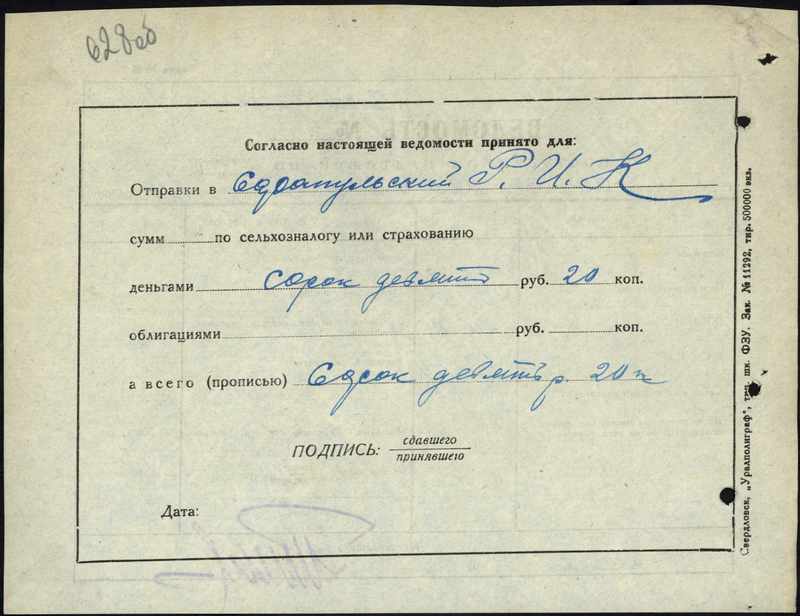 628об
Согласно настоящей ведомости принято для:
Отправки в Сарапульский Р.И.К
сумм по сельхозналогу или страхованию
деньгами сорок девять руб. 20 коп.
облигациями руб. коп.
а всего (прописью) Сорок девять р. 20 к
ПОДПИСЬ: сдавшего
принявшего
Дата:
Свердловск, „Уралполиграф“, тип. шк. ФЗУ. Зак. № 11292, тир. 500000 экз.